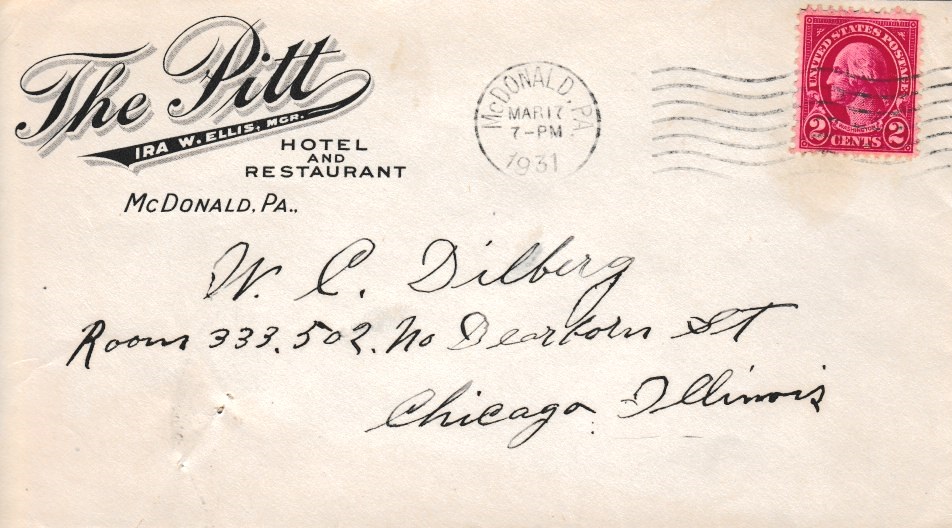 The Pitt
IRA W. ELLIS, MGR.
HOTEL
AND
RESTAURANT
McDONALD, PA.,
McDONALD, PA
MAR 17
7-PM
1931
UNITED STATES POSTAGE
WASHINGTON
2 CENTS 2
W. C. Dilberg
Room 333. 502. No Dearborn St
Chicago Illinois